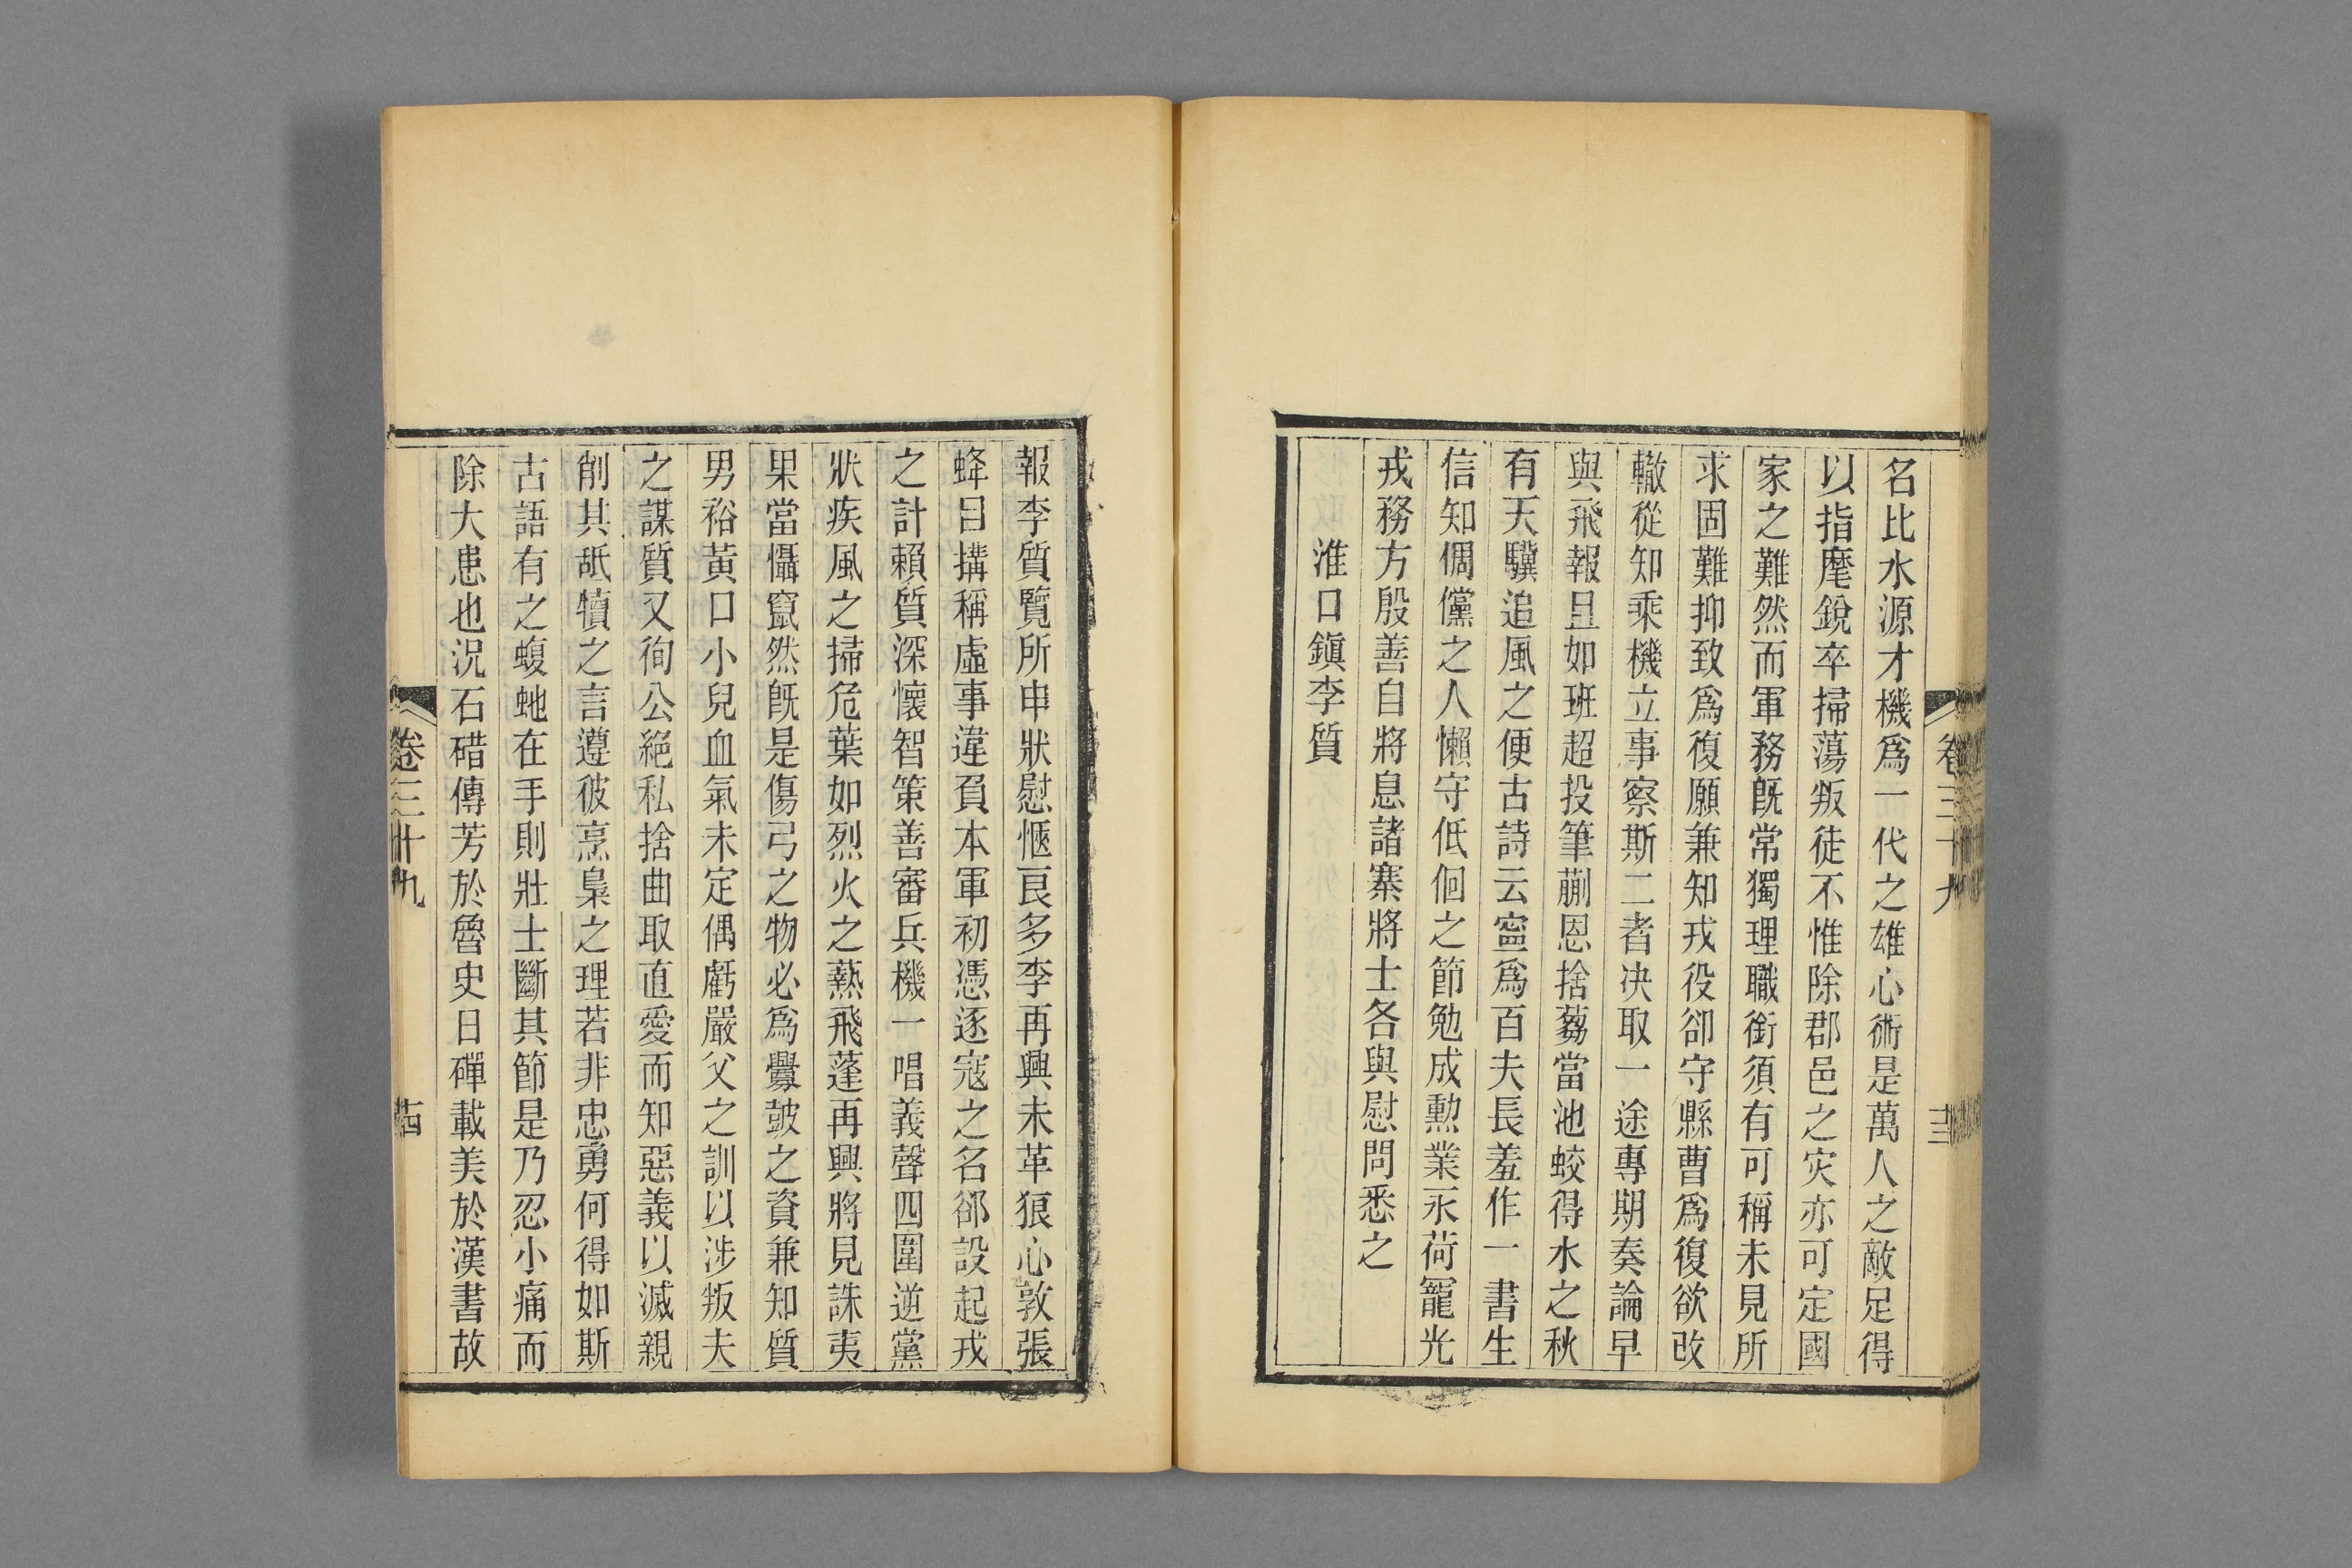 名比水源才機爲一代之雄心術是萬人之敵足得
以指麾銳卒掃蕩叛徒不惟除郡邑之灾亦可定國
家之難然而軍務旣常獨理職銜須有可稱未見所
求固難抑致爲復願兼知戎役卻守縣曹爲復欲改
轍從知乘機立事察斯二者决取一途專期奏論早
與飛報且如班超投筆蒯恩捨蒭當池蛟得水之秋
有天驥追風之便古詩云寍爲百夫長羞作一書生
信知倜儻之人懶守低佪之節勉成勲業永荷寵光
戎務方殷善自將息諸寨將士各與慰問悉之
淮口鎭李質
卷三十九
十三
報李質覽所申狀慰愜良多李再興未革狼心敦張
蜂目搆稱虛事違負本軍初憑逐寇之名郤設起戎
之計賴質深懷智策善審兵機一唱義聲四圍逆黨
狀疾風之掃危葉如烈火之爇飛蓬再興將見誅夷
果當懾竄然旣是傷弓之物必爲釁皷之資兼知質
男裕黃口小兒血氣未定偶虧嚴父之訓以涉叛夫
之謀質又徇公絕私捨曲取直愛而知惡義以滅親
削其舐犢之言遵彼烹梟之理若非忠勇何得如斯
古語有之蝮虵在手則壯士斷其節是乃忍小痛而
除大患也況石碏傳芳於魯史日磾載美於漢書故
卷三十九
十四